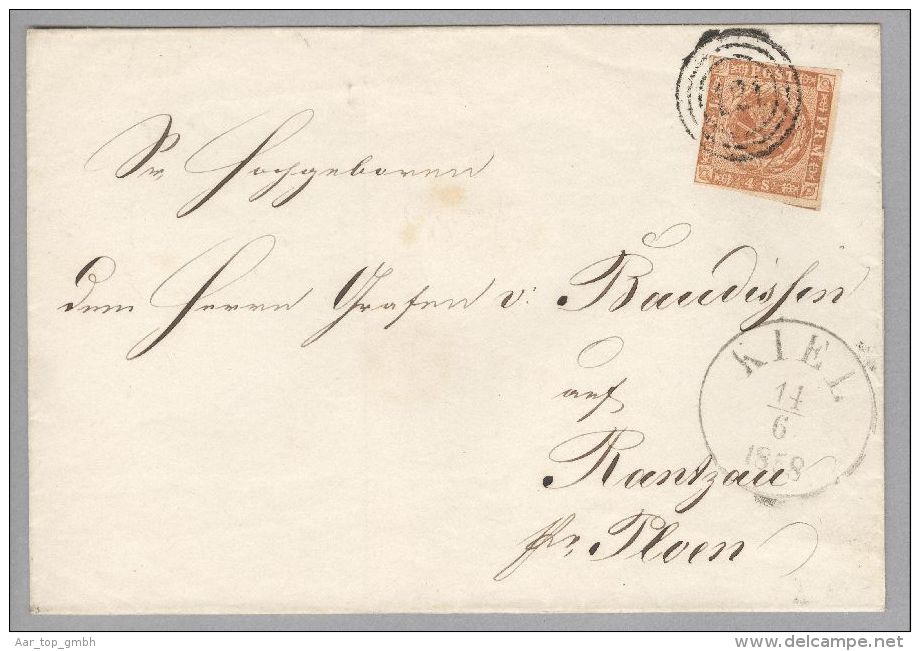 POST
FRM
4 S
Sr. Hochgeboren
dem Herrn Grafen v: Baudissin
KIEL
14
6
1858
auf
Rantzau
pr. Ploen
Aar_top_gmbh
www.delcampe.net